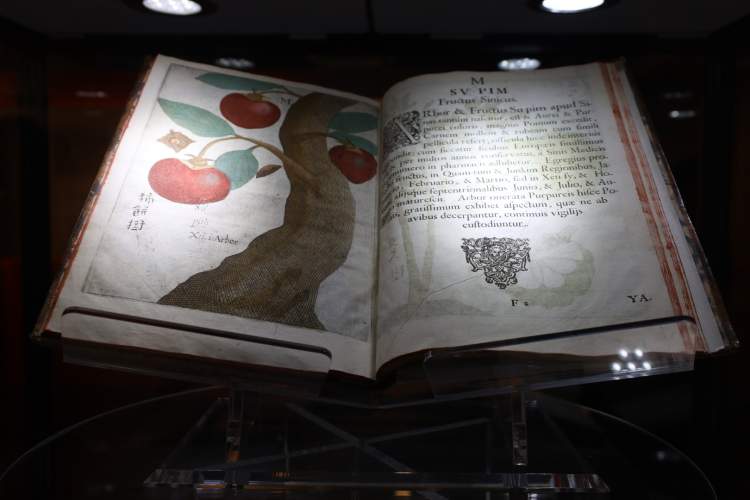 M
柿
餅
樹
Arbor
M
SV PIM
Fructus Sinicus.
Rbor & Fructus Su pim apud Si-
nas tantum nascitur, est & Aurei & Pur-
purei coloris, magnus Pomum excedit,
Carnem mollem & rubeam cum simili
pellicula refert, ossicula hinc inde interius
cum siccatur ficubus Europeis simillimus
per multos annos conservatur, a Sinis Medicis
in pharmacis adhibetur. Egregius pro-
fructus, in Quam-tum & Junkim Regionibus, Ja-
Februario, & Martio, sed in Xen sy, & Ho-
aliisque septentrionalibus Junio, & Julio, & Au-
maturescit. Arbor onerata Purpureis hisce Po-
gratissimum exhibet aspectum, quæ ne ab
avibus decerpantur, continuis vigilijs
custodiuntur.
F 2 YA.